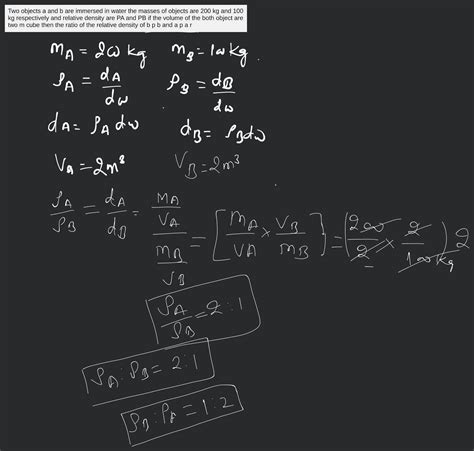 Two objects a and b are immersed in water the masses of objects are 200 kg and 100
kg respectively and relative density are PA and PB if the volume of the both object are
two m cube then the ratio of the relative density of b p b and a p a r
mA = 200 kg mB = 100 kg
ρA = dA/dω ρB = dB/dω
dA = ρA dω dB = ρB dω
VA = 2m³ VB = 2m³
ρA/ρB = dA/dB = (MA/VA)/(MB/VB) = [MA/VA × VB/MB] = (200/2 × 2/100 kg) 2
ρA/ρB = 2:1
ρA : ρB = 2:1
ρB : ρA = 1:2